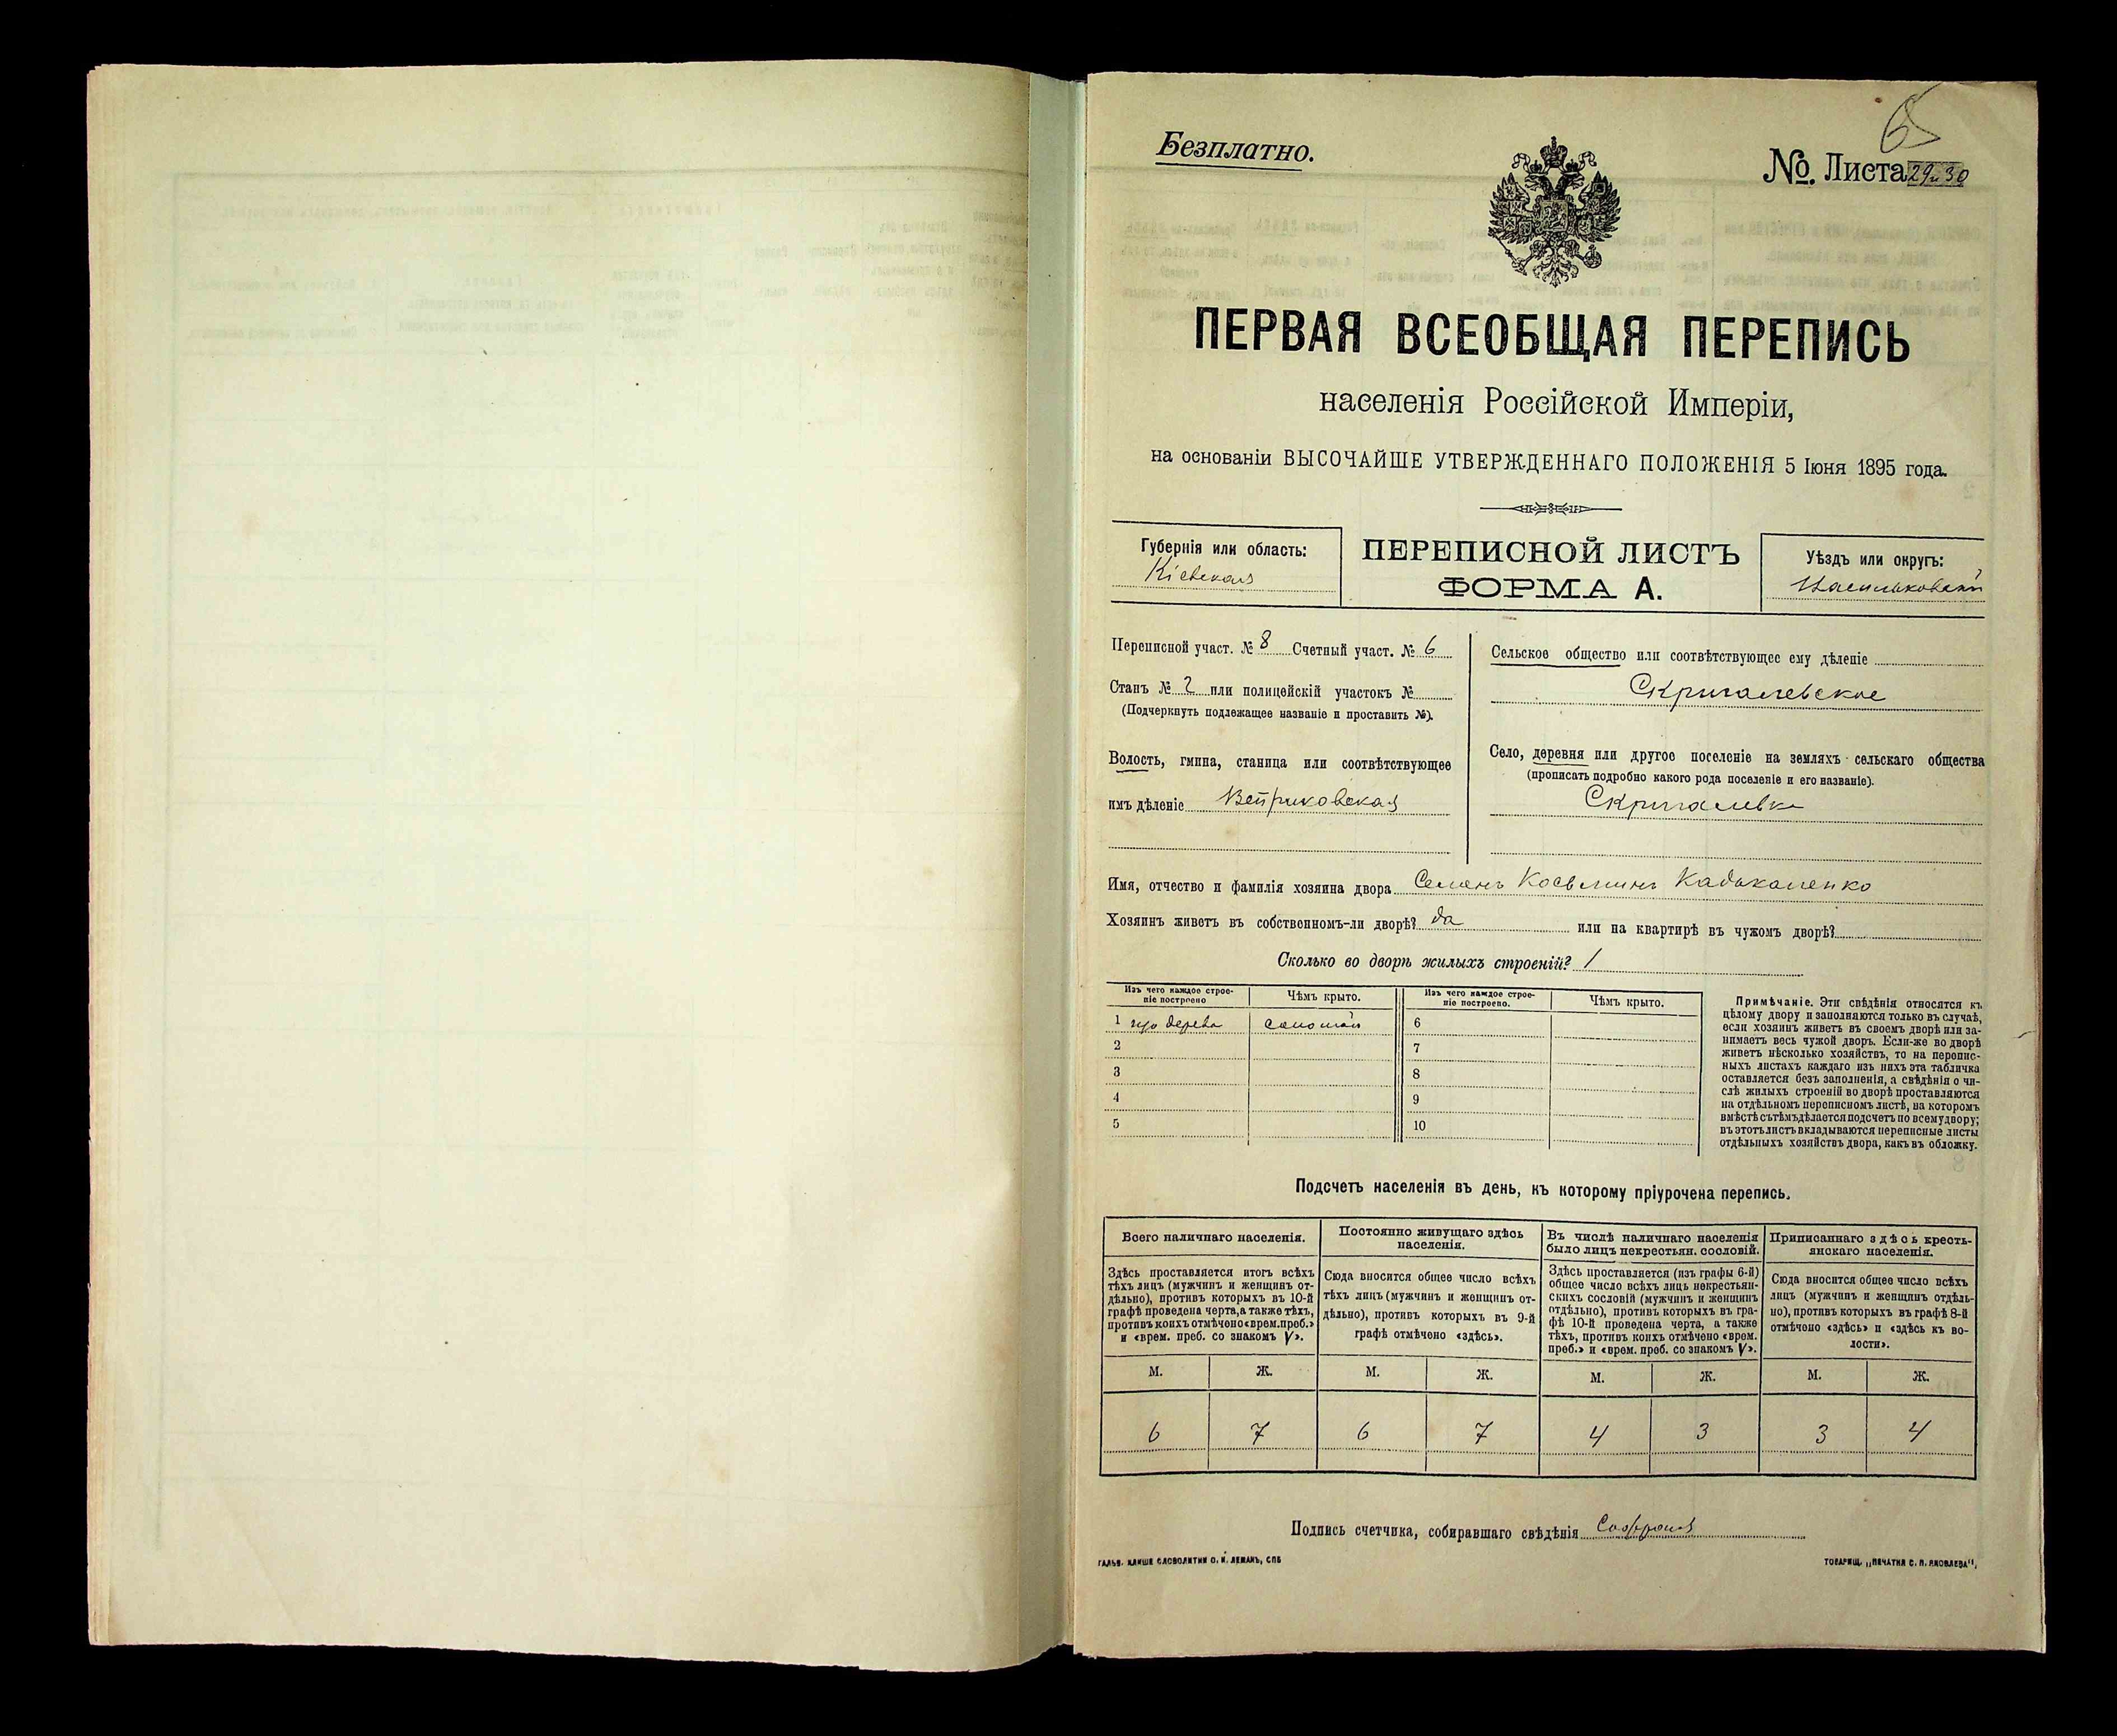 Безплатно.
№ Листа 29 и 30
ПЕРВАЯ ВСЕОБЩАЯ ПЕРЕПИСЬ
населенія Россійской Имперіи,
на основаніи ВЫСОЧАЙШЕ УТВЕРЖДЕННАГО ПОЛОЖЕНІЯ 5 Іюня 1895 года.
Губернія или область:
Кіевская
ПЕРЕПИСНОЙ ЛИСТЪ
ФОРМА А.
Уѣздъ или округъ:
Васильковскій
Переписной участ. № 8 Счетный участ. № 6
Станъ № 2 или полицейскій участокъ №
(Подчеркнуть подлежащее названіе и проставить №).
Волость, гмина, станица или соотвѣтствующее
имъ дѣленіе
Сельское общество или соотвѣтствующее ему дѣленіе
Скригалевское
Село, деревня или другое поселеніе на земляхъ сельскаго общества
(прописать подробно какого рода поселеніе и его названіе).
Скригалевка
Имя, отчество и фамилія хозяина двора Семенъ Косьминъ
Хозяинъ живетъ въ собственномъ-ли дворѣ? да или на квартирѣ въ чужомъ дворѣ?
Сколько во дворѣ жилыхъ строеній? 1
Изъ чего каждое строе-
ніе построено
Чѣмъ крыто.
Изъ чего каждое строе-
ніе построено.
Чѣмъ крыто.
1 изъ дерева соломой 6
2 7
3 8
4 9
5 10
Примѣчаніе. Эти свѣдѣнія относятся къ
цѣлому двору и заполняются только въ случаѣ,
если хозяинъ живетъ въ своемъ дворѣ или за-
нимаетъ весь чужой дворъ. Если-же во дворѣ
живетъ нѣсколько хозяйствъ, то на перепис-
ныхъ листахъ каждаго изъ нихъ эта табличка
оставляется безъ заполненія, а свѣдѣнія о чи-
слѣ жилыхъ строеній во дворѣ проставляются
на отдѣльномъ переписномъ листѣ, на которомъ
вмѣстѣ съ тѣмъ дѣлается подсчетъ по всему двору;
въ этотъ листъ вкладываются переписные листы
отдѣльныхъ хозяйствъ двора, какъ въ обложку.
Подсчетъ населенія въ день, къ которому пріурочена перепись.
Всего наличнаго населенія.
Здѣсь проставляется итогъ всѣхъ
тѣхъ лицъ (мужчинъ и женщинъ от-
дѣльно), противъ которыхъ въ 10-й
графѣ проведена черта, а также тѣхъ,
противъ коихъ отмѣчено «врем. преб.»
и «врем. преб. со знакомъ V».
Постоянно живущаго здѣсь
населенія.
Сюда вносится общее число всѣхъ
тѣхъ лицъ (мужчинъ и женщинъ от-
дѣльно), противъ которыхъ въ 9-й
графѣ отмѣчено «здѣсь».
Въ числѣ наличнаго населенія
было лицъ некрестьян. сословій.
Здѣсь проставляется (изъ графы 6-й)
общее число всѣхъ лицъ некрестьян-
скихъ сословій (мужчинъ и женщинъ
отдѣльно), противъ которыхъ въ гра-
фѣ 10-й проведена черта, а также
тѣхъ, противъ коихъ отмѣчено «врем.
преб.» и «врем. преб. со знакомъ V».
Приписаннаго здѣсь кресть-
янскаго населенія.
Сюда вносится общее число всѣхъ
лицъ (мужчинъ и женщинъ отдѣль-
но), противъ которыхъ въ графѣ 8-й
отмѣчено «здѣсь» и «здѣсь къ во-
лости».
М. Ж. М. Ж. М. Ж. М. Ж.
6 7 6 7 4 3 3 4
Подпись счетчика, собиравшаго свѣдѣнія
ГАЛЬВ. КЛИШЕ СЛОВОЛИТНИ О. И. ЛЕМАНЪ, СПБ
ТОВАРИЩ. „ПЕЧАТНЯ С. П. ЯКОВЛЕВА".